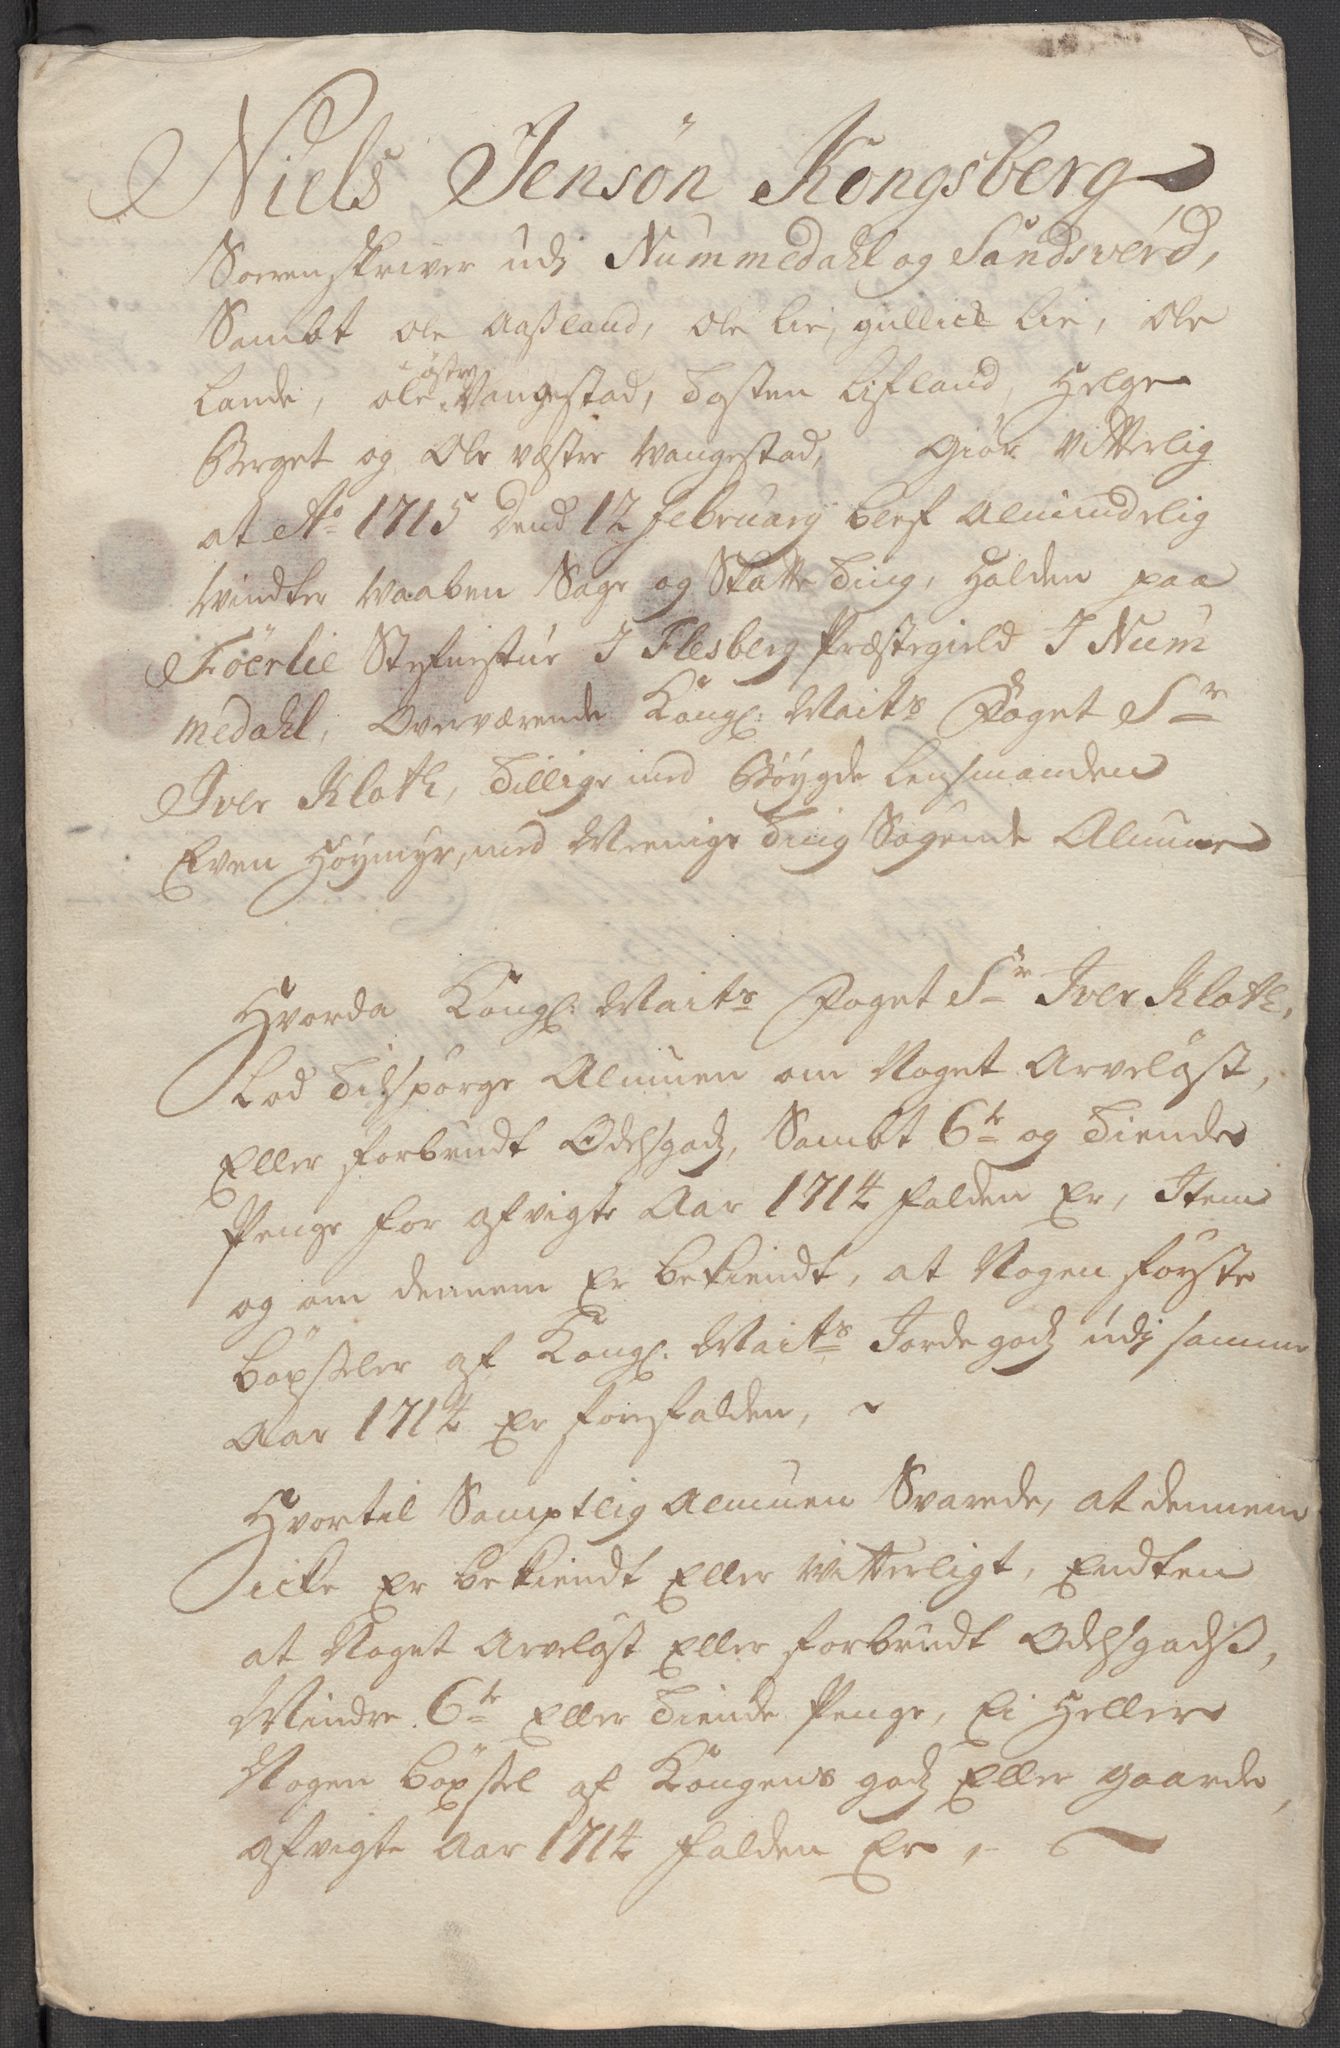 Niels Jensøn Kongsberg
Sorrenskriver udj Nummedahl og Sandsverd,
Sambt Ole Aasland, Ole Lie, gullick Lie, Ole
Lande, ole østre Vangestad, Tosten Lifland, Helge
Berget og Ole væstre Wangestad, Giør Vitterlig
at Ao 1715 Dend 12 February blef Almindelig
Windter Waaben Sage og Skatte Ting, Holden paa
Föerlie Stefnestue I Flesberg Præstegield I Num
medahl, Overværende Kongl: Maits Foget Sr
Iver Kloth, Tillige med Bøygde Lensmanden
Even Høymyr, med Menige Ting Søgende Almue
Hvorda Kongl: Maits Foget Sr Iver Kloth,
Lod Tilspørge Almuen om Noget Arveløst,
Eller forbrudt Odelsgodz, Sambt 6te og Tiende
Penge for afvigte Aar 1714 falden Er, Item
og om dennem Er bekiendt, at Nogen første
böxseler af Kongl: Maits Jordegodz udj samme
Aar 1714 Er forefalden,
Hvortil Samptlig Almuen Svarede, at dennem
icke Er bekiendt Eller Witterligt, Endten
at Noget Arveløst Eller forbrudt Odelsgodss,
Mindre 6te Eller Tiende Penge, Ei Heller
Nogen böxsel af Kongens godz Eller gaarde,
afvigte Aar 1714 falden Er,